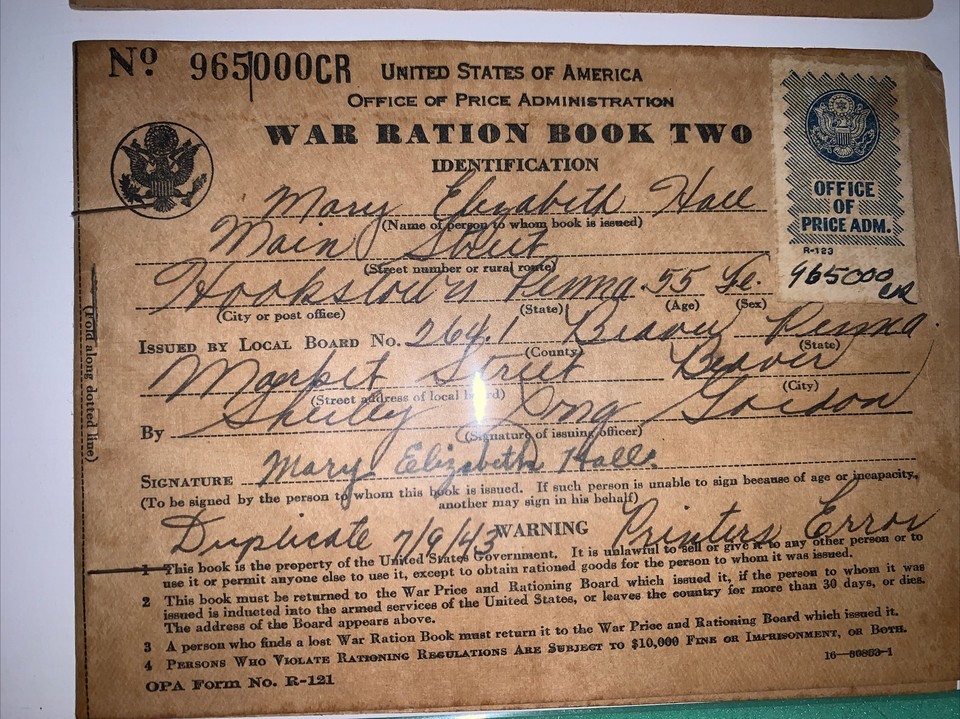 Nº 965000CR UNITED STATES OF AMERICA
OFFICE OF PRICE ADMINISTRATION
WAR RATION BOOK TWO
IDENTIFICATION
OFFICE
OF
PRICE ADM.
R-123
965000
CR
Mary Elizabeth Hall
(Name of person to whom book is issued)
Main Street
(Street number or rural route)
Hookstown Penna. 55 Fe.
(City or post office) (State) (Age) (Sex)
ISSUED BY LOCAL BOARD NO. 264.1 Beaver Penna.
(County) (State)
Market Street Beaver
(Street address of local board) (City)
By Shirley Gordon
(Signature of issuing officer)
SIGNATURE Mary Elizabeth Hall.
(To be signed by the person to whom this book is issued. If such person is unable to sign because of age or incapacity,
another may sign in his behalf)
Duplicate 7/9/43 WARNING Printers Error
1 This book is the property of the United States Government. It is unlawful to sell or give it to any other person or to
use it or permit anyone else to use it, except to obtain rationed goods for the person to whom it was issued.
2 This book must be returned to the War Price and Rationing Board which issued it, if the person to whom it was
issued is inducted into the armed services of the United States, or leaves the country for more than 30 days, or dies.
The address of the Board appears above.
3 A person who finds a lost War Ration Book must return it to the War Price and Rationing Board which issued it.
4 PERSONS WHO VIOLATE RATIONING REGULATIONS ARE SUBJECT TO $10,000 FINE OR IMPRISONMENT, OR BOTH.
OPA FORM NO. R-121
16—30853-1
(Fold along dotted line)